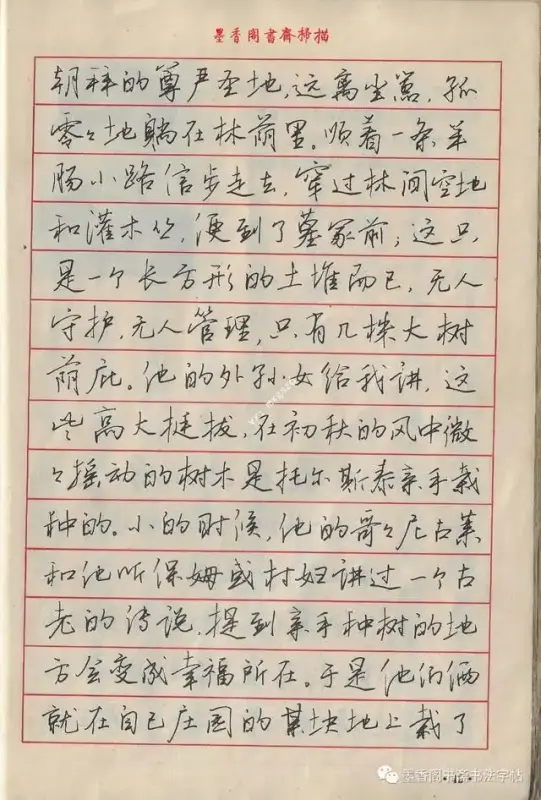 墨香阁書齋掃描
朝拜的尊严圣地，远离尘嚣，孤
零々地躺在林荫里。顺着一条羊
肠小路信步走去，穿过林间空地
和灌木丛，便到了墓冢前；这只
是一个长方形的土堆而已，无人
守护，无人管理，只有几株大树
荫庇。他的外孙女给我讲，这
些高大挺拔，在初秋的风中微
々摇动的树木是托尔斯泰亲手栽
种的。小的时候，他的哥々尼古莱
和他听保姆或村妇讲过一个古
老的传说，提到亲手种树的地
方会变成幸福所在。于是他们俩
就在自己庄园的某块地上栽了
墨香阁书斋书法字帖